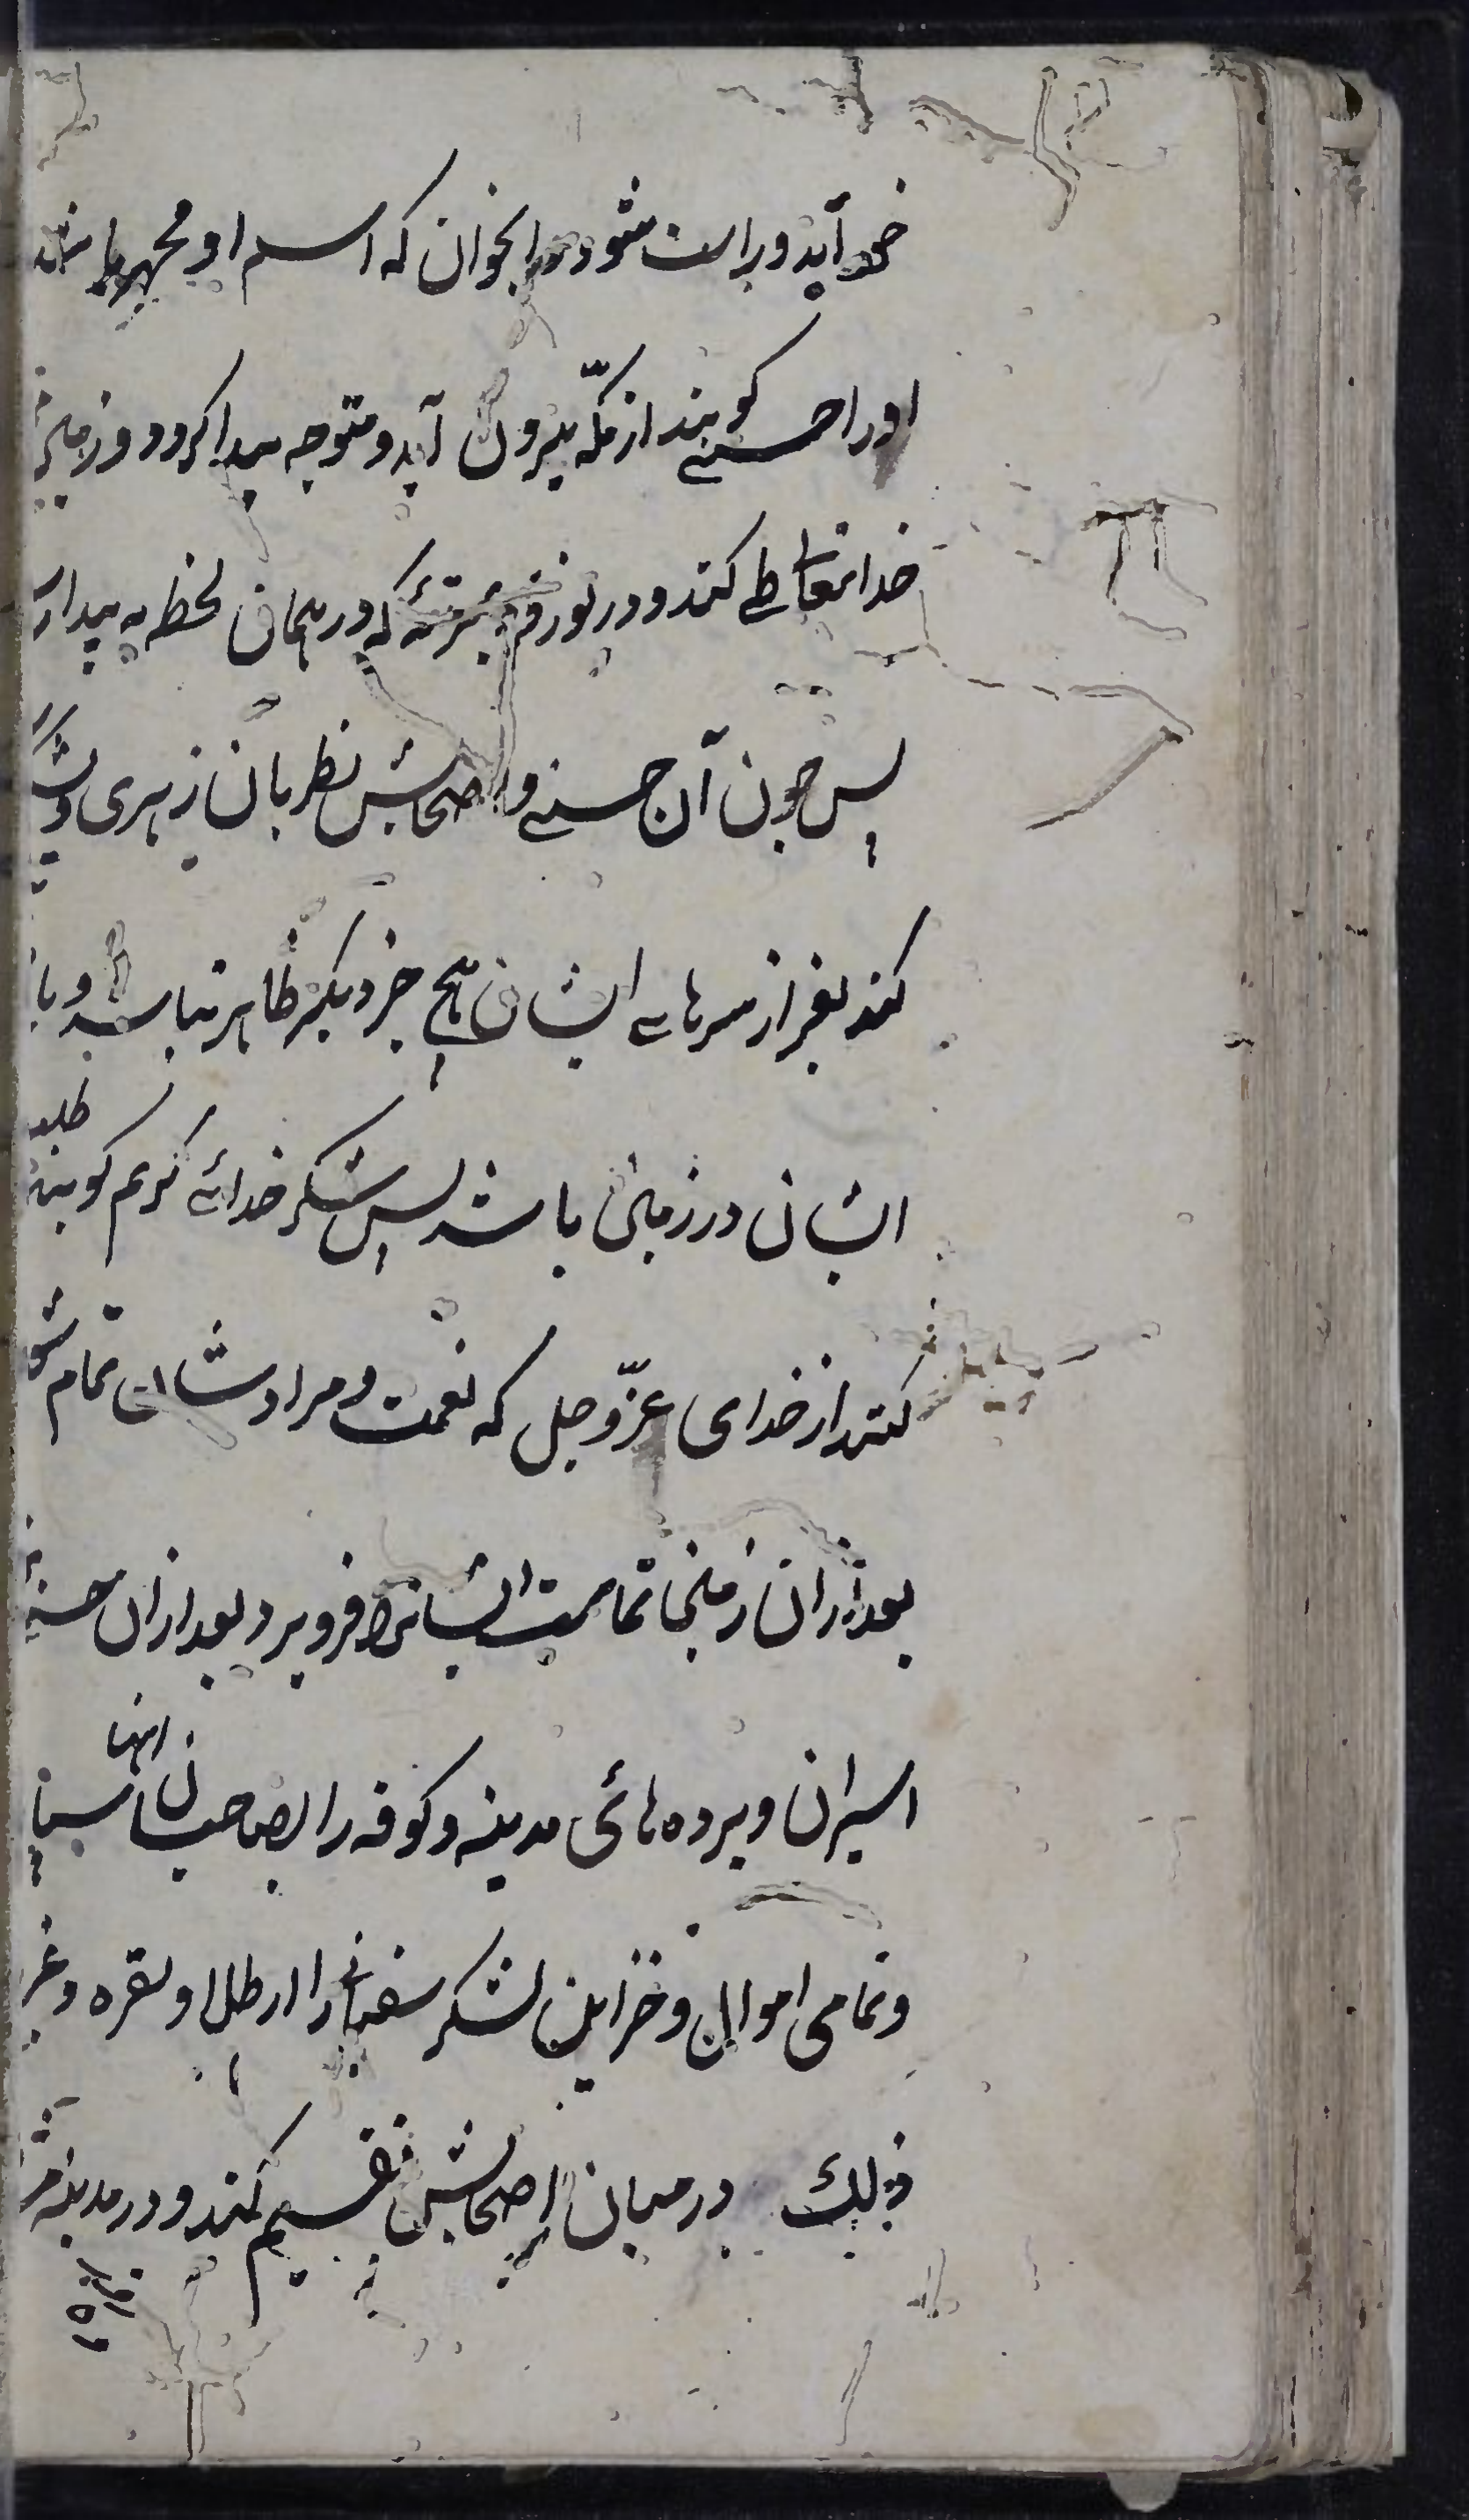 خود آید و راست شود و آنجوان که اسم او محمد باشد
او را حسنی کویند از مکه بیرون آید و متوجه بیدا کردد و زمین
خدایتعالی طی کند و در نوردد بمرتبهٔ که در همان لحظه به بیدا رسد
پس چون آن حسنی و اصحابش نظر بان زهری و لشکر
کنند بغیر از سرهای ایشان هیچ چیز دیکر ظاهر نباشد و باقی
ایشان در زمین باشد پس شکر خدای کریم کویند و طلب
کنند از خدای عزّ و جل که نعمت و مراد شان تمام شود
بعد از ان زمین تمامیت ایشانرا فرو برد بعد از ان حسنی
اسیران و برده های مدینه و کوفه را بصاحبان انها سپارد
و تمامی اموال و خزاین لشکر سفیانی را از طلا و نقره و غیر
ذلک در میان اصحابش تقسیم کند و در مدینه